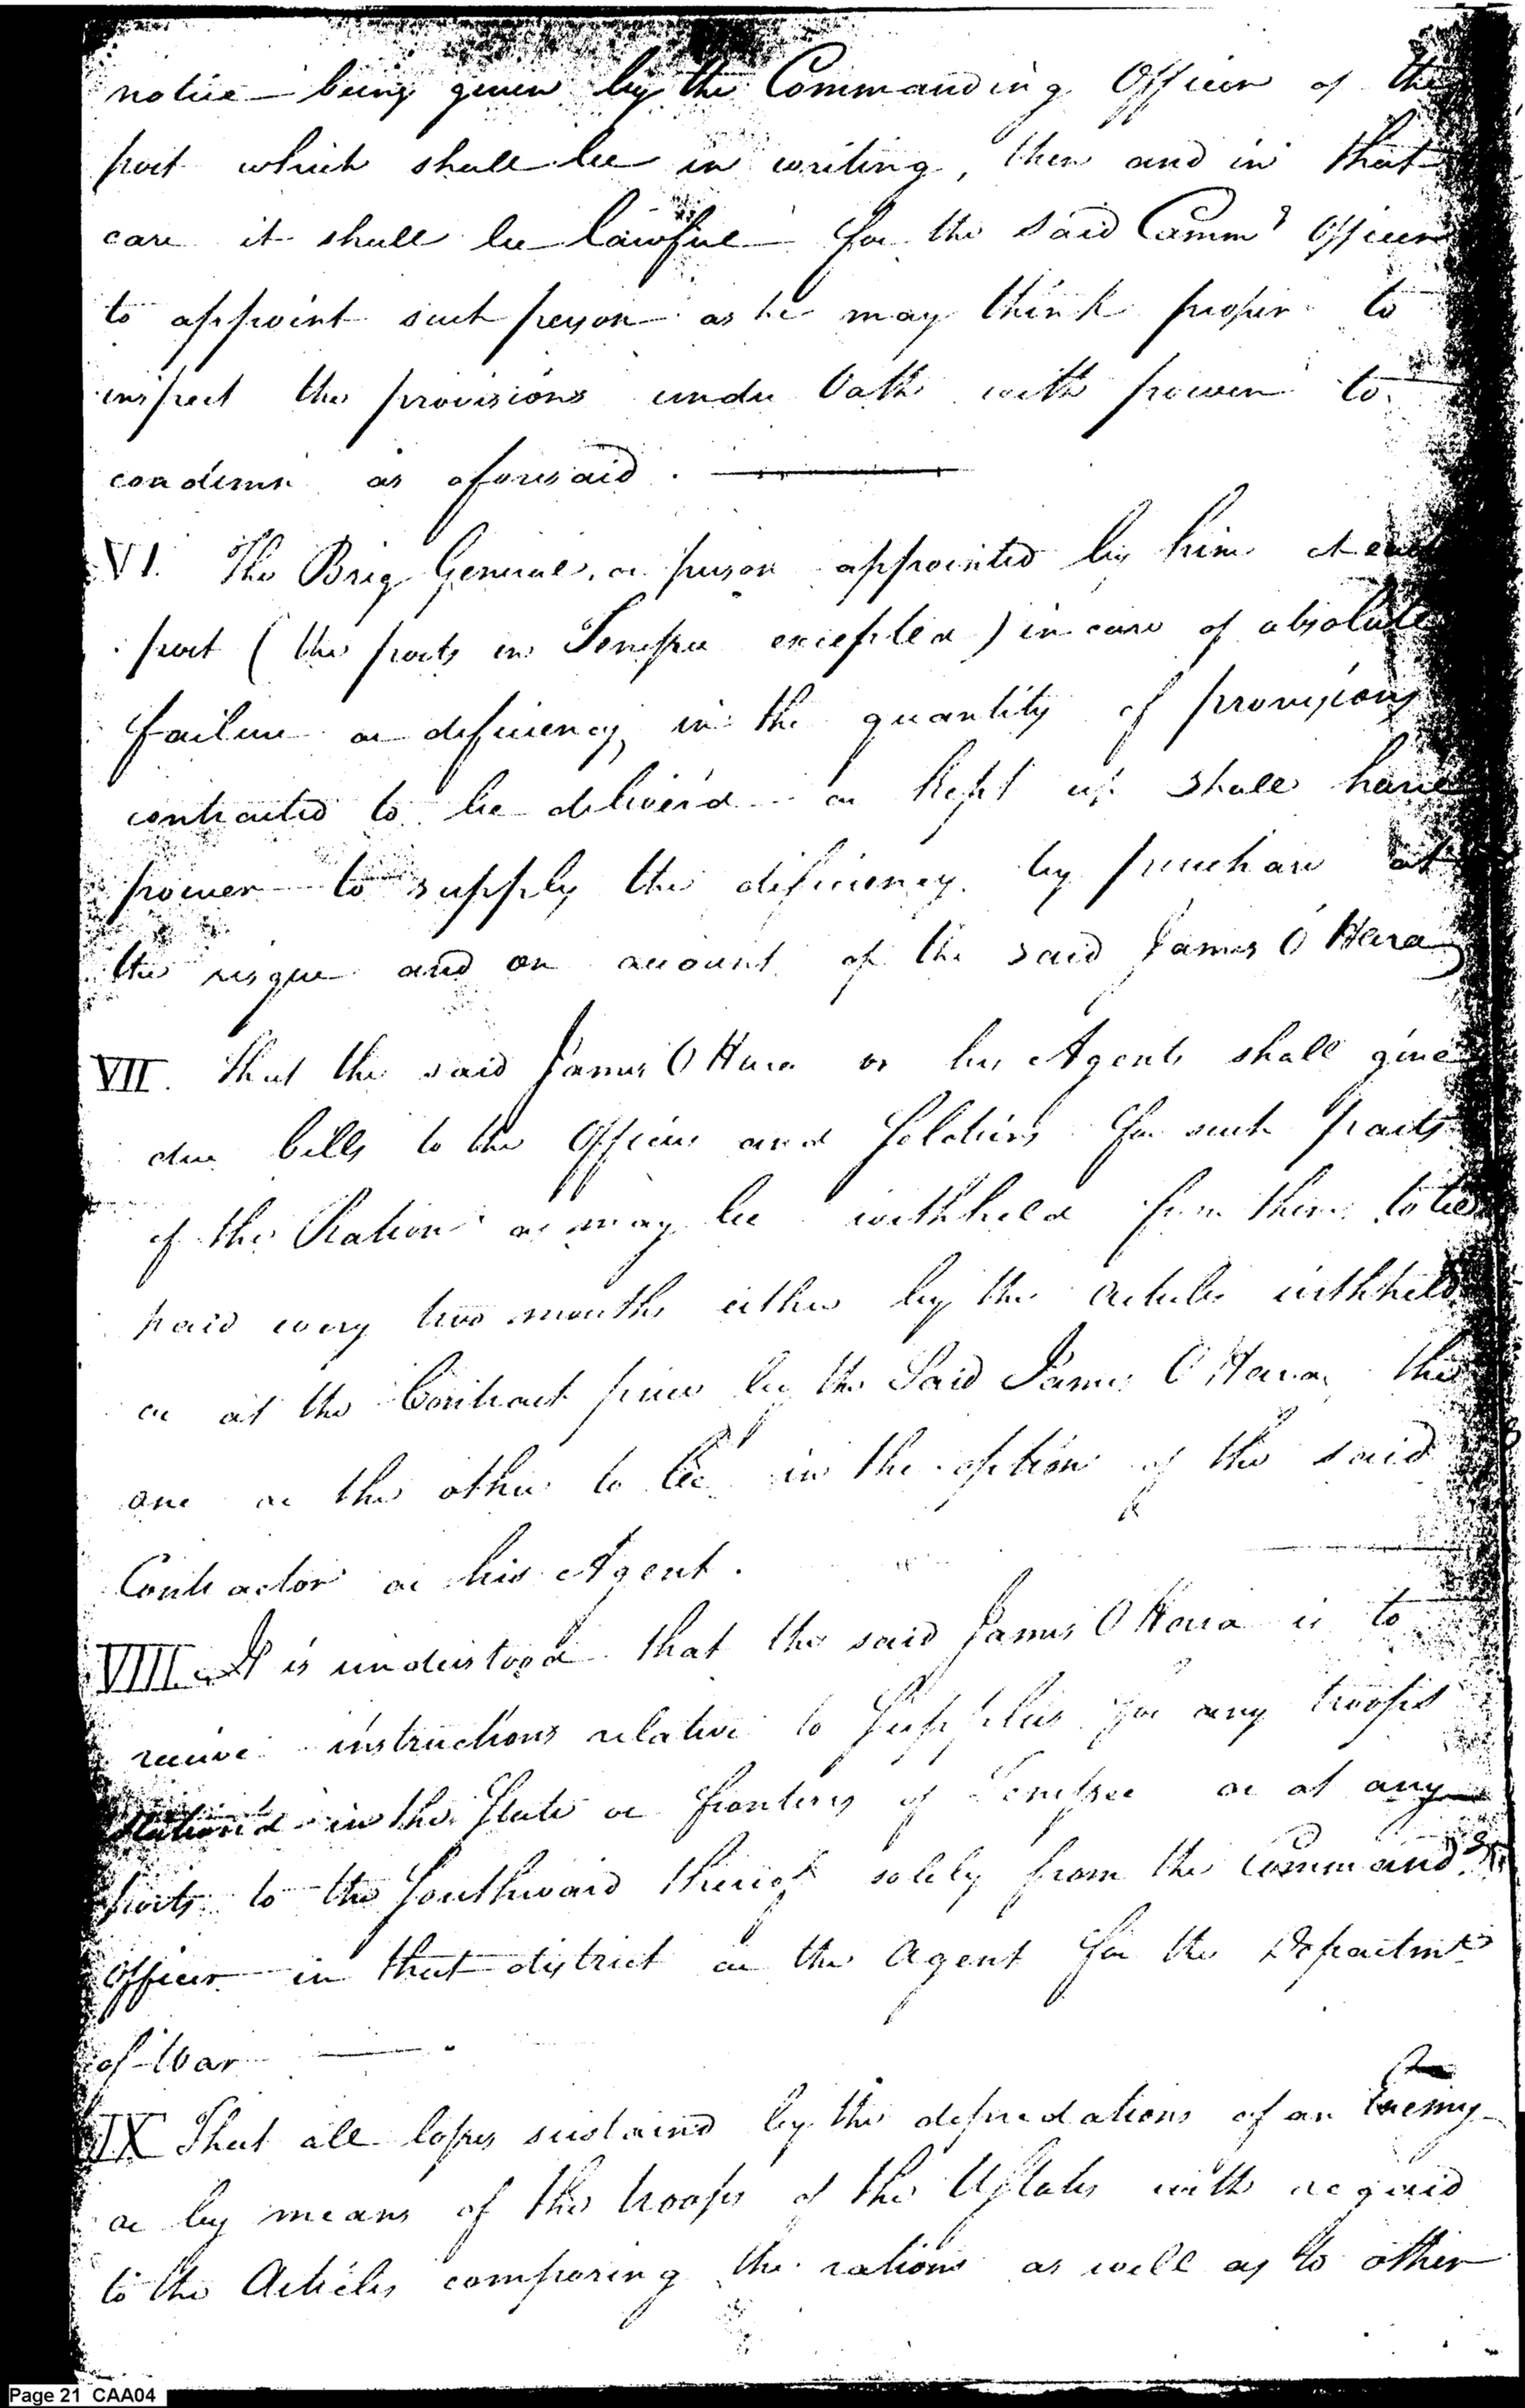 notice being given by the Commanding Officer of the
post which shall be in writing, then and in that
case it shall be lawful for the said Comm.g Officer
to appoint such person as he may think proper to
inspect the provisions under Oath with power to
condemn as aforesaid.
VI. The Brig General, or person appointed by him at each
post (the posts in Tenessee excepted) in case of absolute
failure or deficiency in the quantity of provisions
contracted to be deliver'd or kept up shall have
power to supply the deficiency by purchase at
the risque and on account of the said James O'Hara
VII. That the said James O Hara or his Agents shall give
due bills to the Officers and Soldiers for such parts
of the Ration as may be withheld from them to be
paid every two months either by the Articles withheld
or at the Contract price by the Said James O Hara, the
one or the other to be in the option of the said
Contractor or his Agent.
VIII. It is understood that the said James O Hara is to
receive instructions relative to Supplies for any troops
stationed in the State or frontiers of Tenessee or at any
posts to the Southward thereof solely from the Command.g
officer in that district or the Agent for the Departmt
of War
IX That all losses sustaind by the depredations of an Enemy
or by means of the troops of the UStates with regard
to the Articles composing the rations as well as to other
Page 21 CAA04